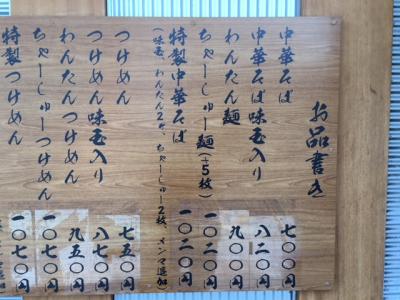 お品書き
中華そば 七〇〇円
中華そば味玉入り 八二〇円
わんたん麺 九〇〇円
ちゃーしゅー麺(5枚) 一〇二〇円
特製中華そば 一〇二〇円
(味玉、わんたん2ヶ、ちゃーしゅー2枚、メンマ追加)
つけめん 七五〇円
つけめん味玉入り 八七〇円
わんたんつけめん 九五〇円
ちゃーしゅーつけめん 一〇七〇円
特製つけめん 一〇七〇円